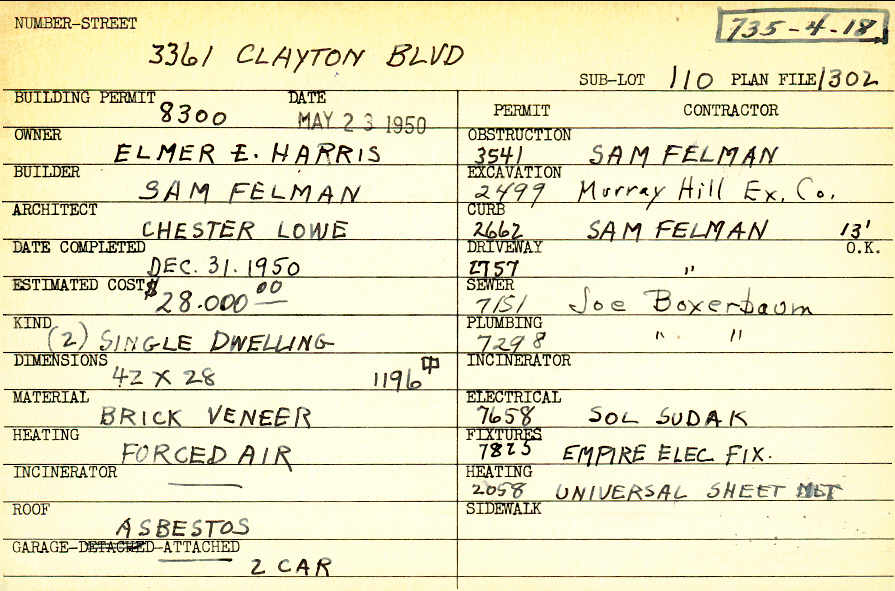 NUMBER-STREET
735-4-18
3361 CLAYTON BLVD
SUB-LOT 110 PLAN FILE 1302
BUILDING PERMIT 8300 DATE MAY 23 1950
OWNER ELMER E. HARRIS
BUILDER SAM FELMAN
ARCHITECT CHESTER LOWE
DATE COMPLETED DEC. 31. 1950
ESTIMATED COST $28.000 00
KIND (2) SINGLE DWELLING
DIMENSIONS 42 X 28 1196
MATERIAL BRICK VENEER
HEATING FORCED AIR
INCINERATOR —
ROOF ASBESTOS
GARAGE-DETACHED-ATTACHED 2 CAR
PERMIT CONTRACTOR
OBSTRUCTION 3541 SAM FELMAN
EXCAVATION 2499 Murray Hill Ex. Co.
CURB 2662 SAM FELMAN 13'
DRIVEWAY 2757 " O.K.
SEWER 7151 Joe Boxerbaum
PLUMBING 7298 " "
INCINERATOR
ELECTRICAL 7658 SOL SUDAK
FIXTURES 7825 EMPIRE ELEC FIX.
HEATING 2058 UNIVERSAL SHEET MET
SIDEWALK